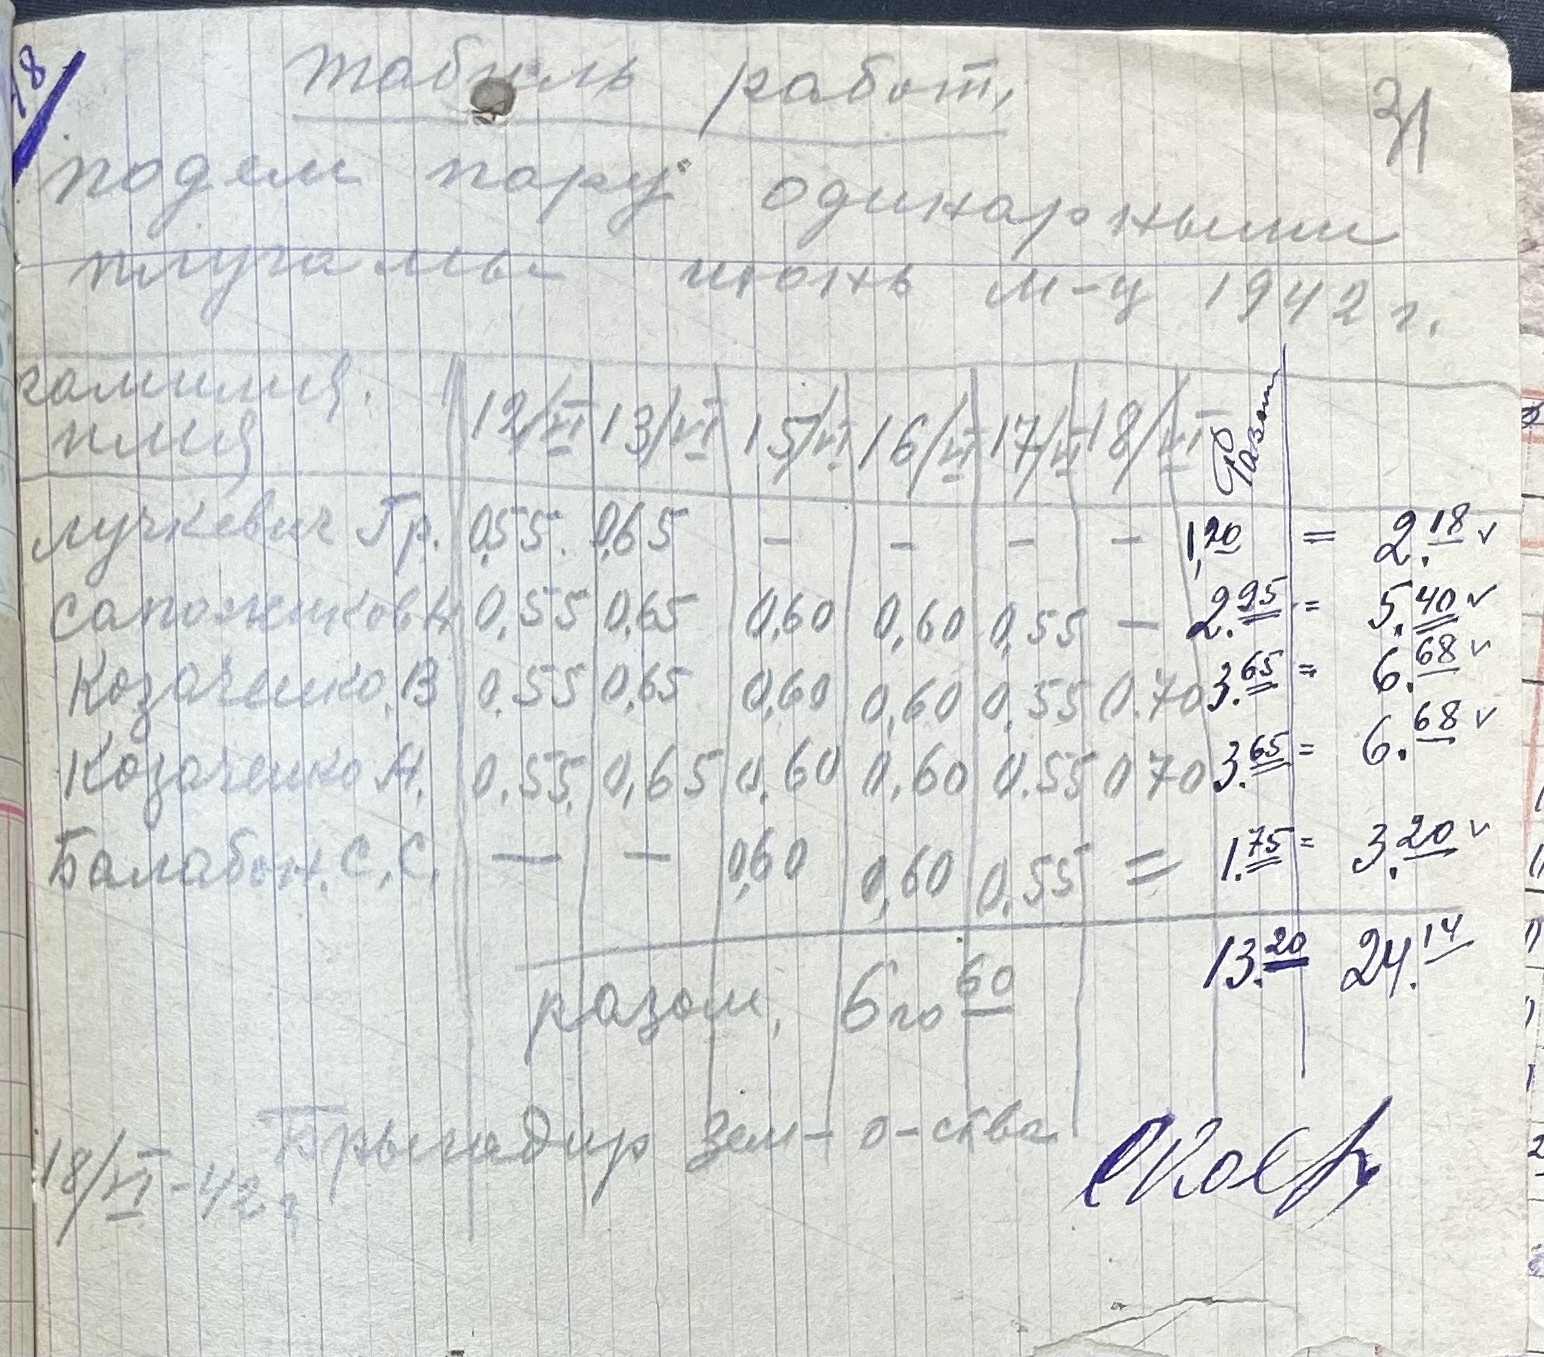 18
31
табель работ,
подем пару одинарными
плугамы июнь м-ц 1942 г.
фамилия. имя 12/VI 13/VI 15/VI 16/VI 17/VI 18/VI Разом
лучкевич Гр. 0,55. 0,65 - - - - 1,20 = 2.18 v
сапожников А 0,55 0,65 0,60 0,60 0,55 - 2.95 = 5.40 v
Козаченко, В 0.55 0,65 0,60 0,60 0,55 0.70 3.65 = 6.68 v
Козаченко А. 0.55. 0,65 0.60 0,60 0.55 0.70 3.65 = 6.68 v
Балабон. С. С. — — 0,60 0,60 0,55 = 1.75 = 3.20 v
13.20 24.14
разом, 6го 60
Брыгадир зем-о-ства
18/VI-42г